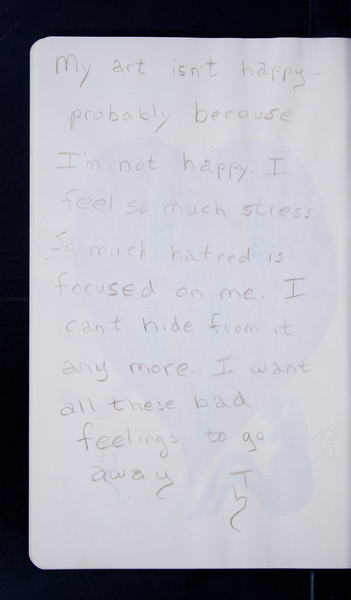 My art isn't happy -
probably because
I'm not happy. I
feel so much stress.
So much hatred is
focused on me. I
can't hide from it
any more. I want
all these bad
feelings to go
away